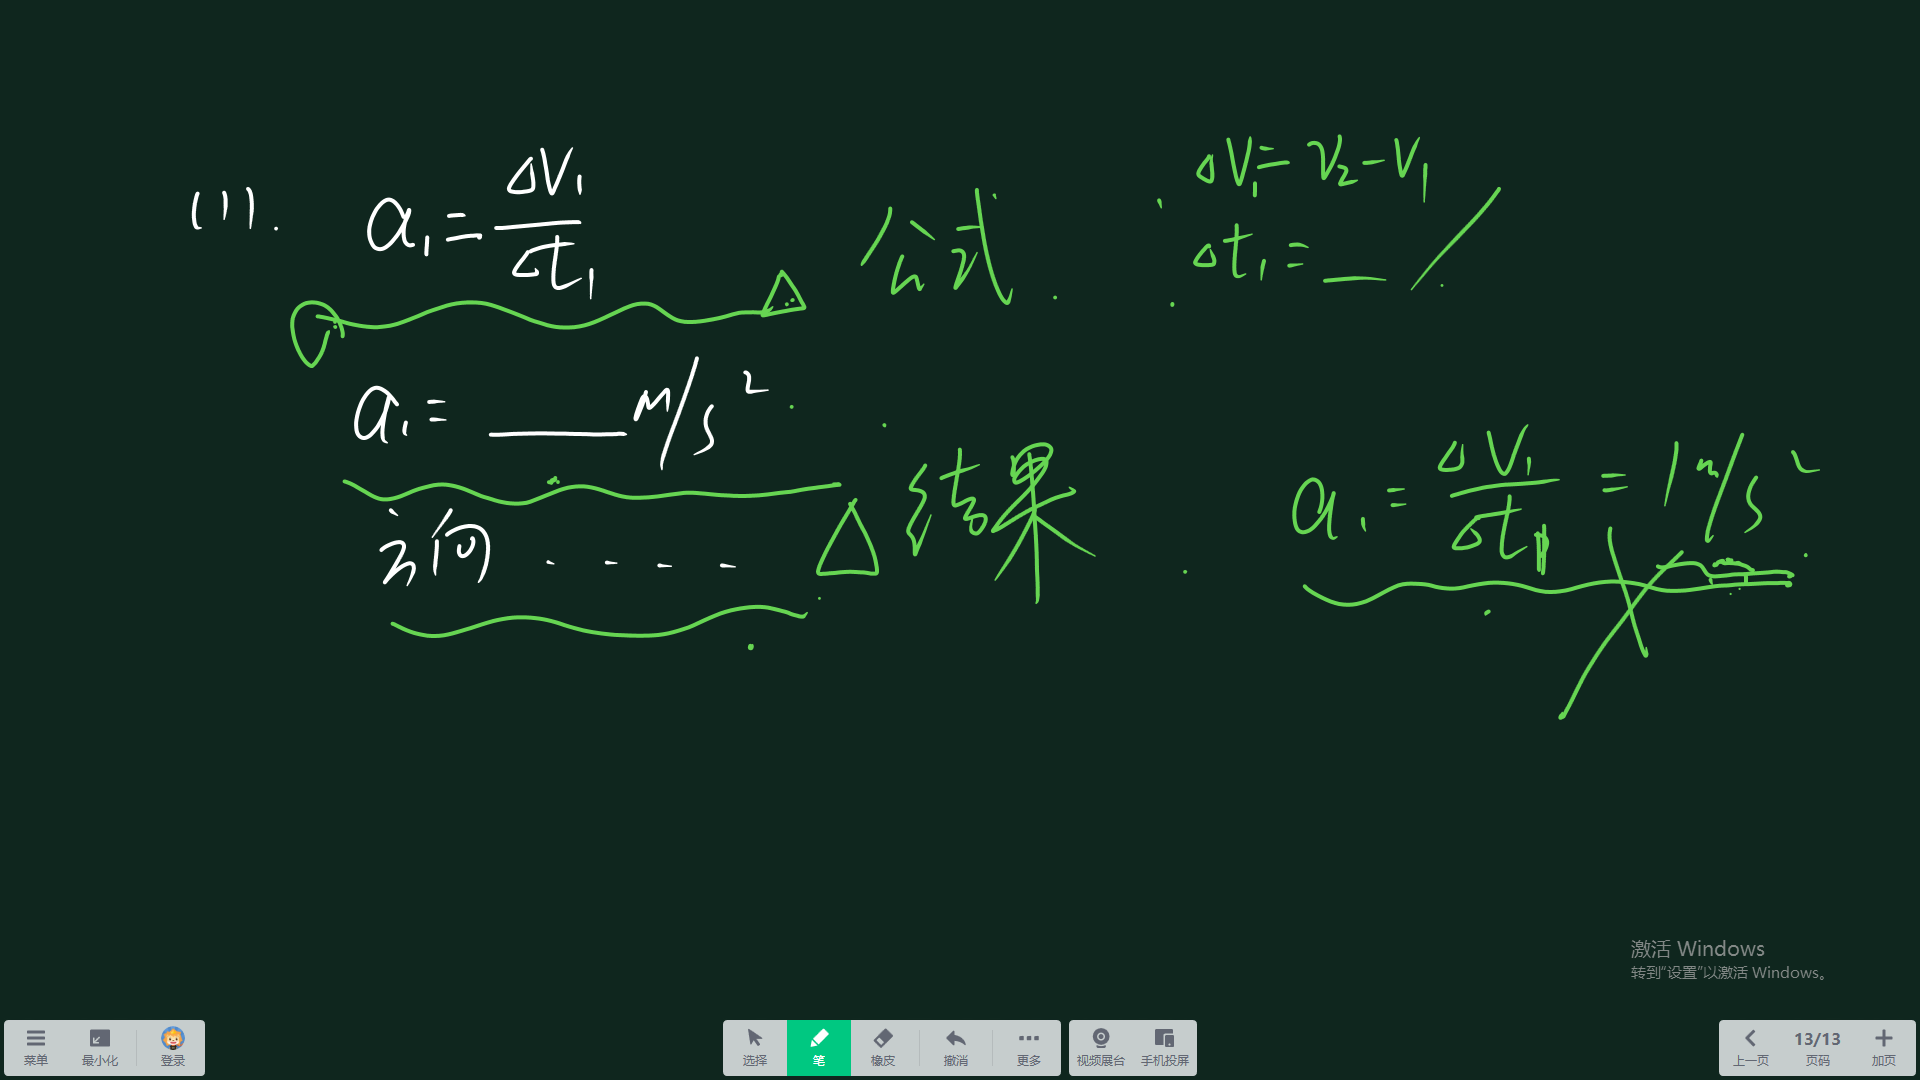 (1). a₁ = ΔV₁/Δt₁ 公式
ΔV₁ = V₂ - V₁
Δt₁ = __
a₁ = ____ m/s²
结果
a₁ = ΔV₁/Δt₁ = 1 m/s²
方向 ....
激活 Windows
转到“设置”以激活 Windows。
菜单 最小化 登录
选择 笔 橡皮 撤消 更多 视频展台 手机投屏
13/13
上一页 页码 加页